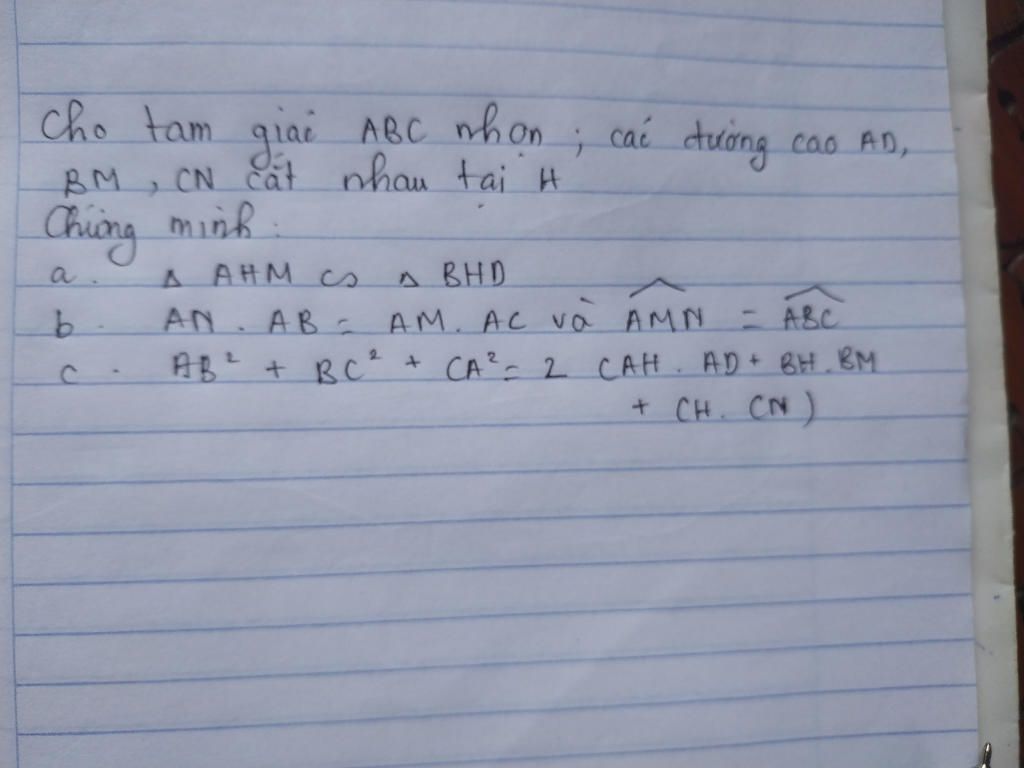 Cho tam giác ABC nhọn ; các đường cao AD,
BM , CN cắt nhau tại H
Chứng minh :
a. Δ AHM ∽ Δ BHD
b. AN . AB = AM . AC và \widehat{AMN} = \widehat{ABC}
c. AB² + BC² + CA² = 2 (AH . AD + BH . BM
+ CH . CN )